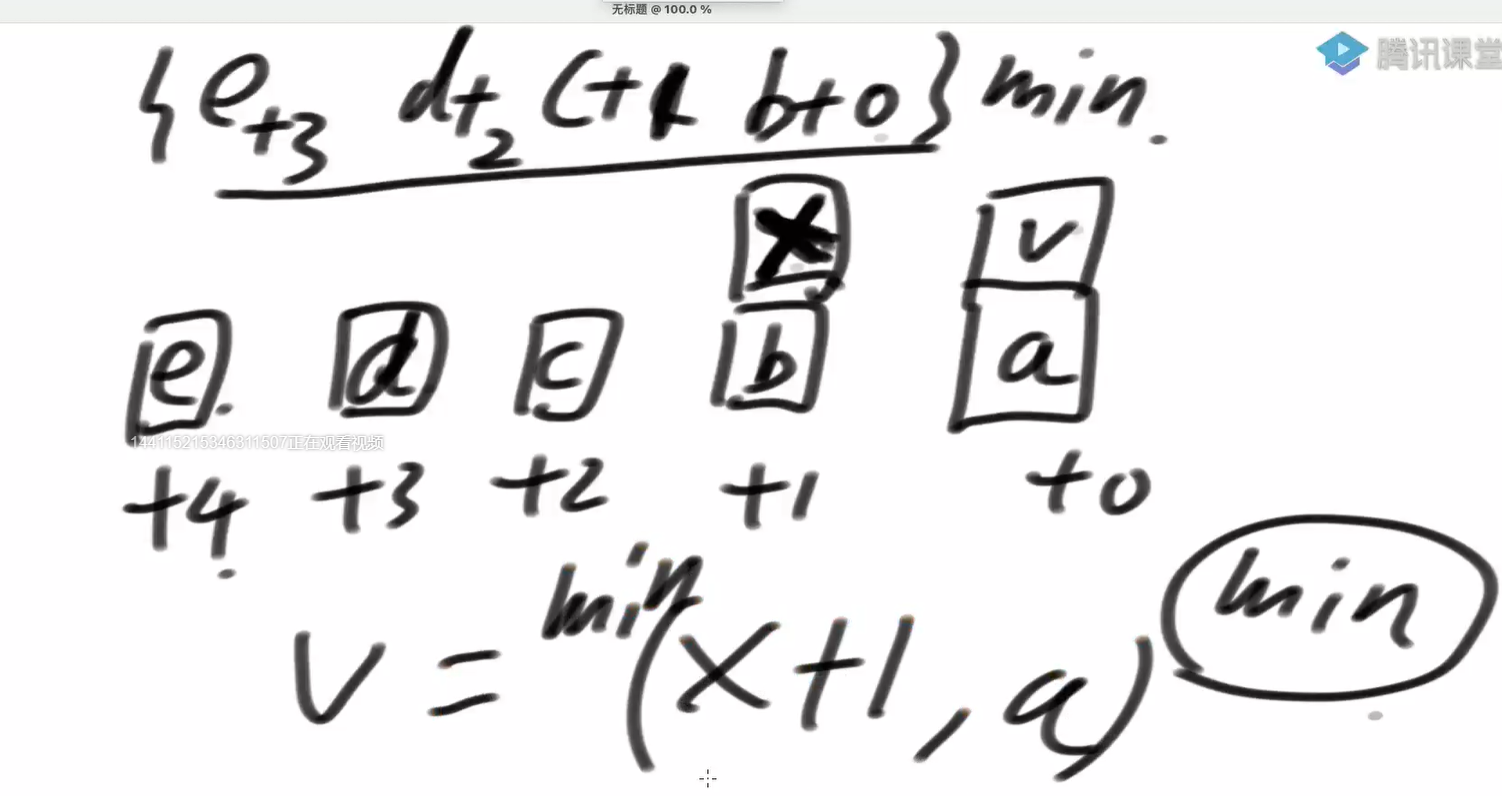 无标题 @ 100.0 %
腾讯课堂
{e+3 d+2 c+1 b+0} min.
x v
e d c b a
144115215346311507正在观看视频
+4 +3 +2 +1 +0
min
v = min(x+1, a)